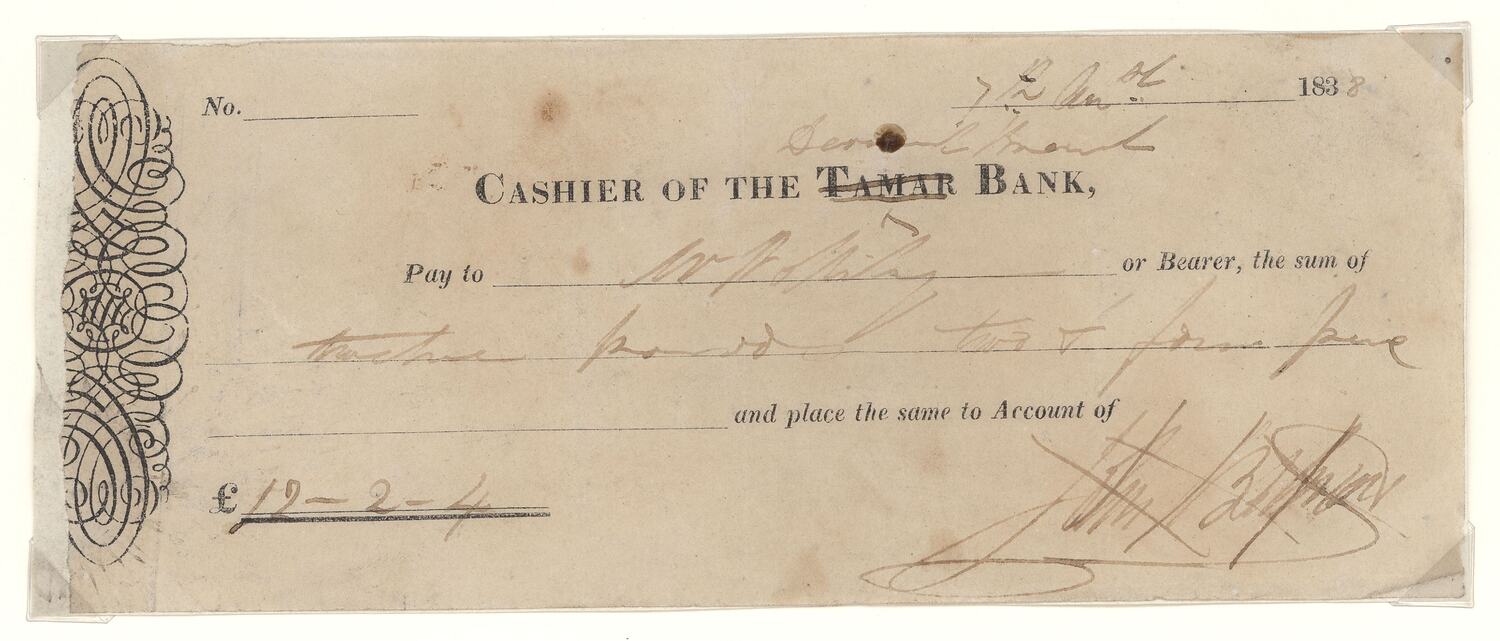 No.
7th Augst 1838
Derwent
CASHIER OF THE TAMAR BANK,
Pay to Mr or Bearer, the sum of
twelve pounds two & four pence
and place the same to Account of
£12-2-4
John